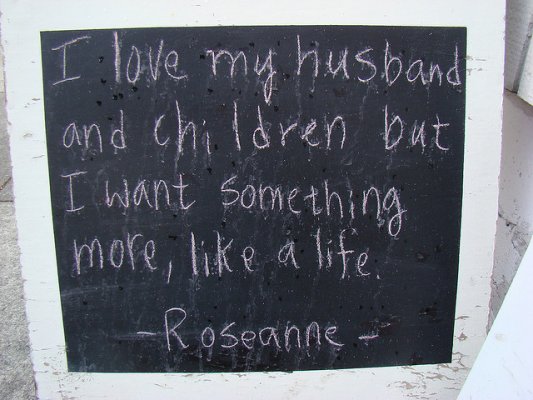 I love my husband
and children but
I want something
more, like a life.
-Roseanne-